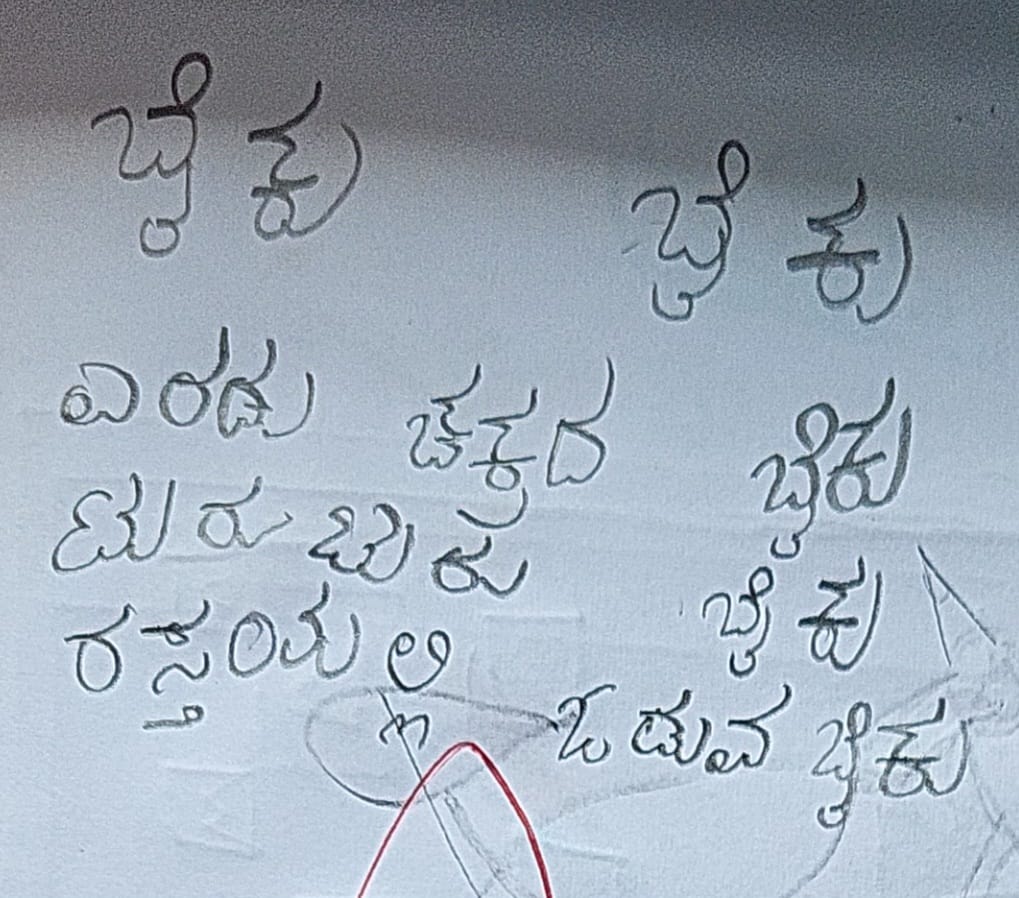 ಬೈಕು ಬೈಕು
ಎರಡು ಚಕ್ರದ ಬೈಕು
ಟುರು ಬುರು ಬೈಕು
ರಸ್ತೆಯಲ್ಲಿ
ಓಡುವ ಬೈಕು